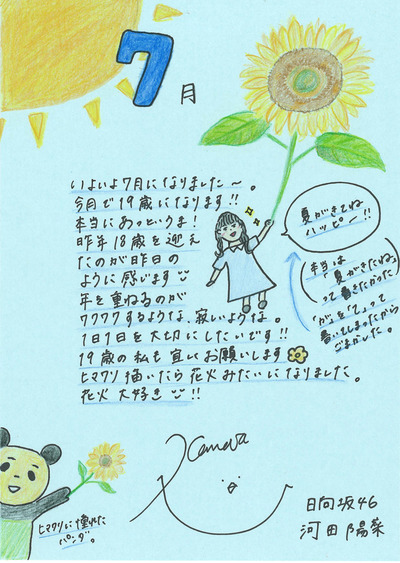 7月
いよいよ7月になりました〜。
今月で19歳になります!!
本当にあっというま!
昨年18歳を迎え
たのが昨日の
ように感います
年を重ねるのが
ワクワクするような、寂しいような。
1日1日を大切にしたいです!!
19歳の私も宜しくお願いします
ヒマワリ描いたら花火みたいになりました。
花火大好き!!
夏がきてね
ハッピー!!
(本当は
「夏がきたね」
って書きたかった
「が」を「て」って
書いてしまったから
ごまかした。)
ヒマワリに憧れた
パンダ。
Kawata
日向坂46
河田陽菜